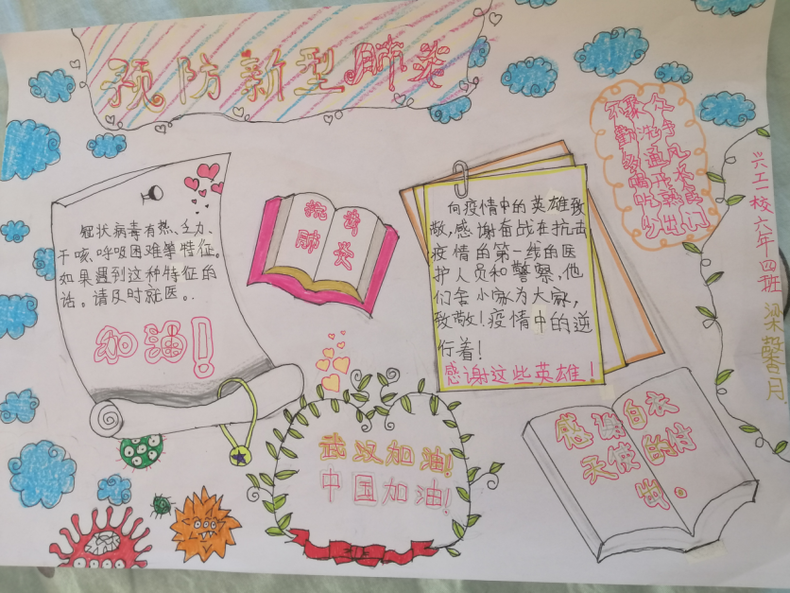 预防新型肺炎
不聚众
勤洗手
多通风
喝开水
吃熟食
少出门
兴工一校六年四班 梁馨月
冠状病毒有热、乏力、
干咳、呼吸困难等特征。
如果遇到这种特征的
话。请及时就医。
加油!
抗击
肺炎
向疫情中的英雄致
敬,感谢奋战在抗击
疫情的第一线的医
护人员和警察、他
们舍小家为大家,
致敬!疫情中的逆
行着!
感谢这些英雄!
武汉加油!
中国加油!
感谢白衣
天使的付
出。